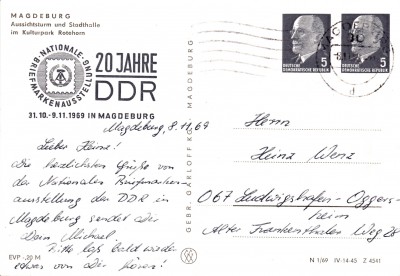 MAGDEBURG
Aussichtsturm und Stadthalle
im Kulturpark Rotehorn
NATIONALE
BRIEFMARKENAUSSTELLUNG
20 JAHRE
DDR
31.10.-9.11.1969 IN MAGDEBURG
5
DEUTSCHE
DEMOKRATISCHE REPUBLIK
5
DEUTSCHE
DEMOKRATISCHE REPUBLIK
Magdeburg, 8.11.69
Lieber Heinz!
Die herzlichsten Grüße von
der Nationalen Briefmarken-
ausstellung der DDR in
Magdeburg sendet Dir
Dein Michael
Bitte laß bald wieder
etwas von Dir hören!
GEBR. GARLOFF KG MAGDEBURG
Herrn
Heinz Wenz
067 Ludwigshafen-Oggers-
heim
Alter Frankenthaler Weg 28
EVP -,20 M
N 1/69 IV-14-45 Z 4541